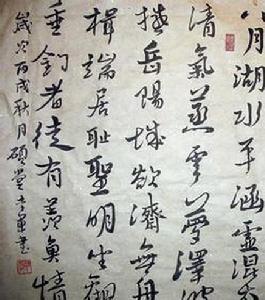 八月湖水平涵虛混太
清氣蒸雲夢澤波
撼岳陽城欲濟無舟
楫端居耻聖明坐觀
垂釣者徒有羨魚情
歲次丙戌秋月碩堂書